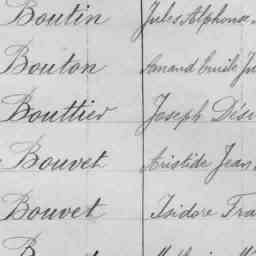 Boutin Jules Alphonse
Bouton Amand Emile Ju
Bouttier Joseph Dési
Bouvet Aristide Jean
Bouvet Isidore Fra